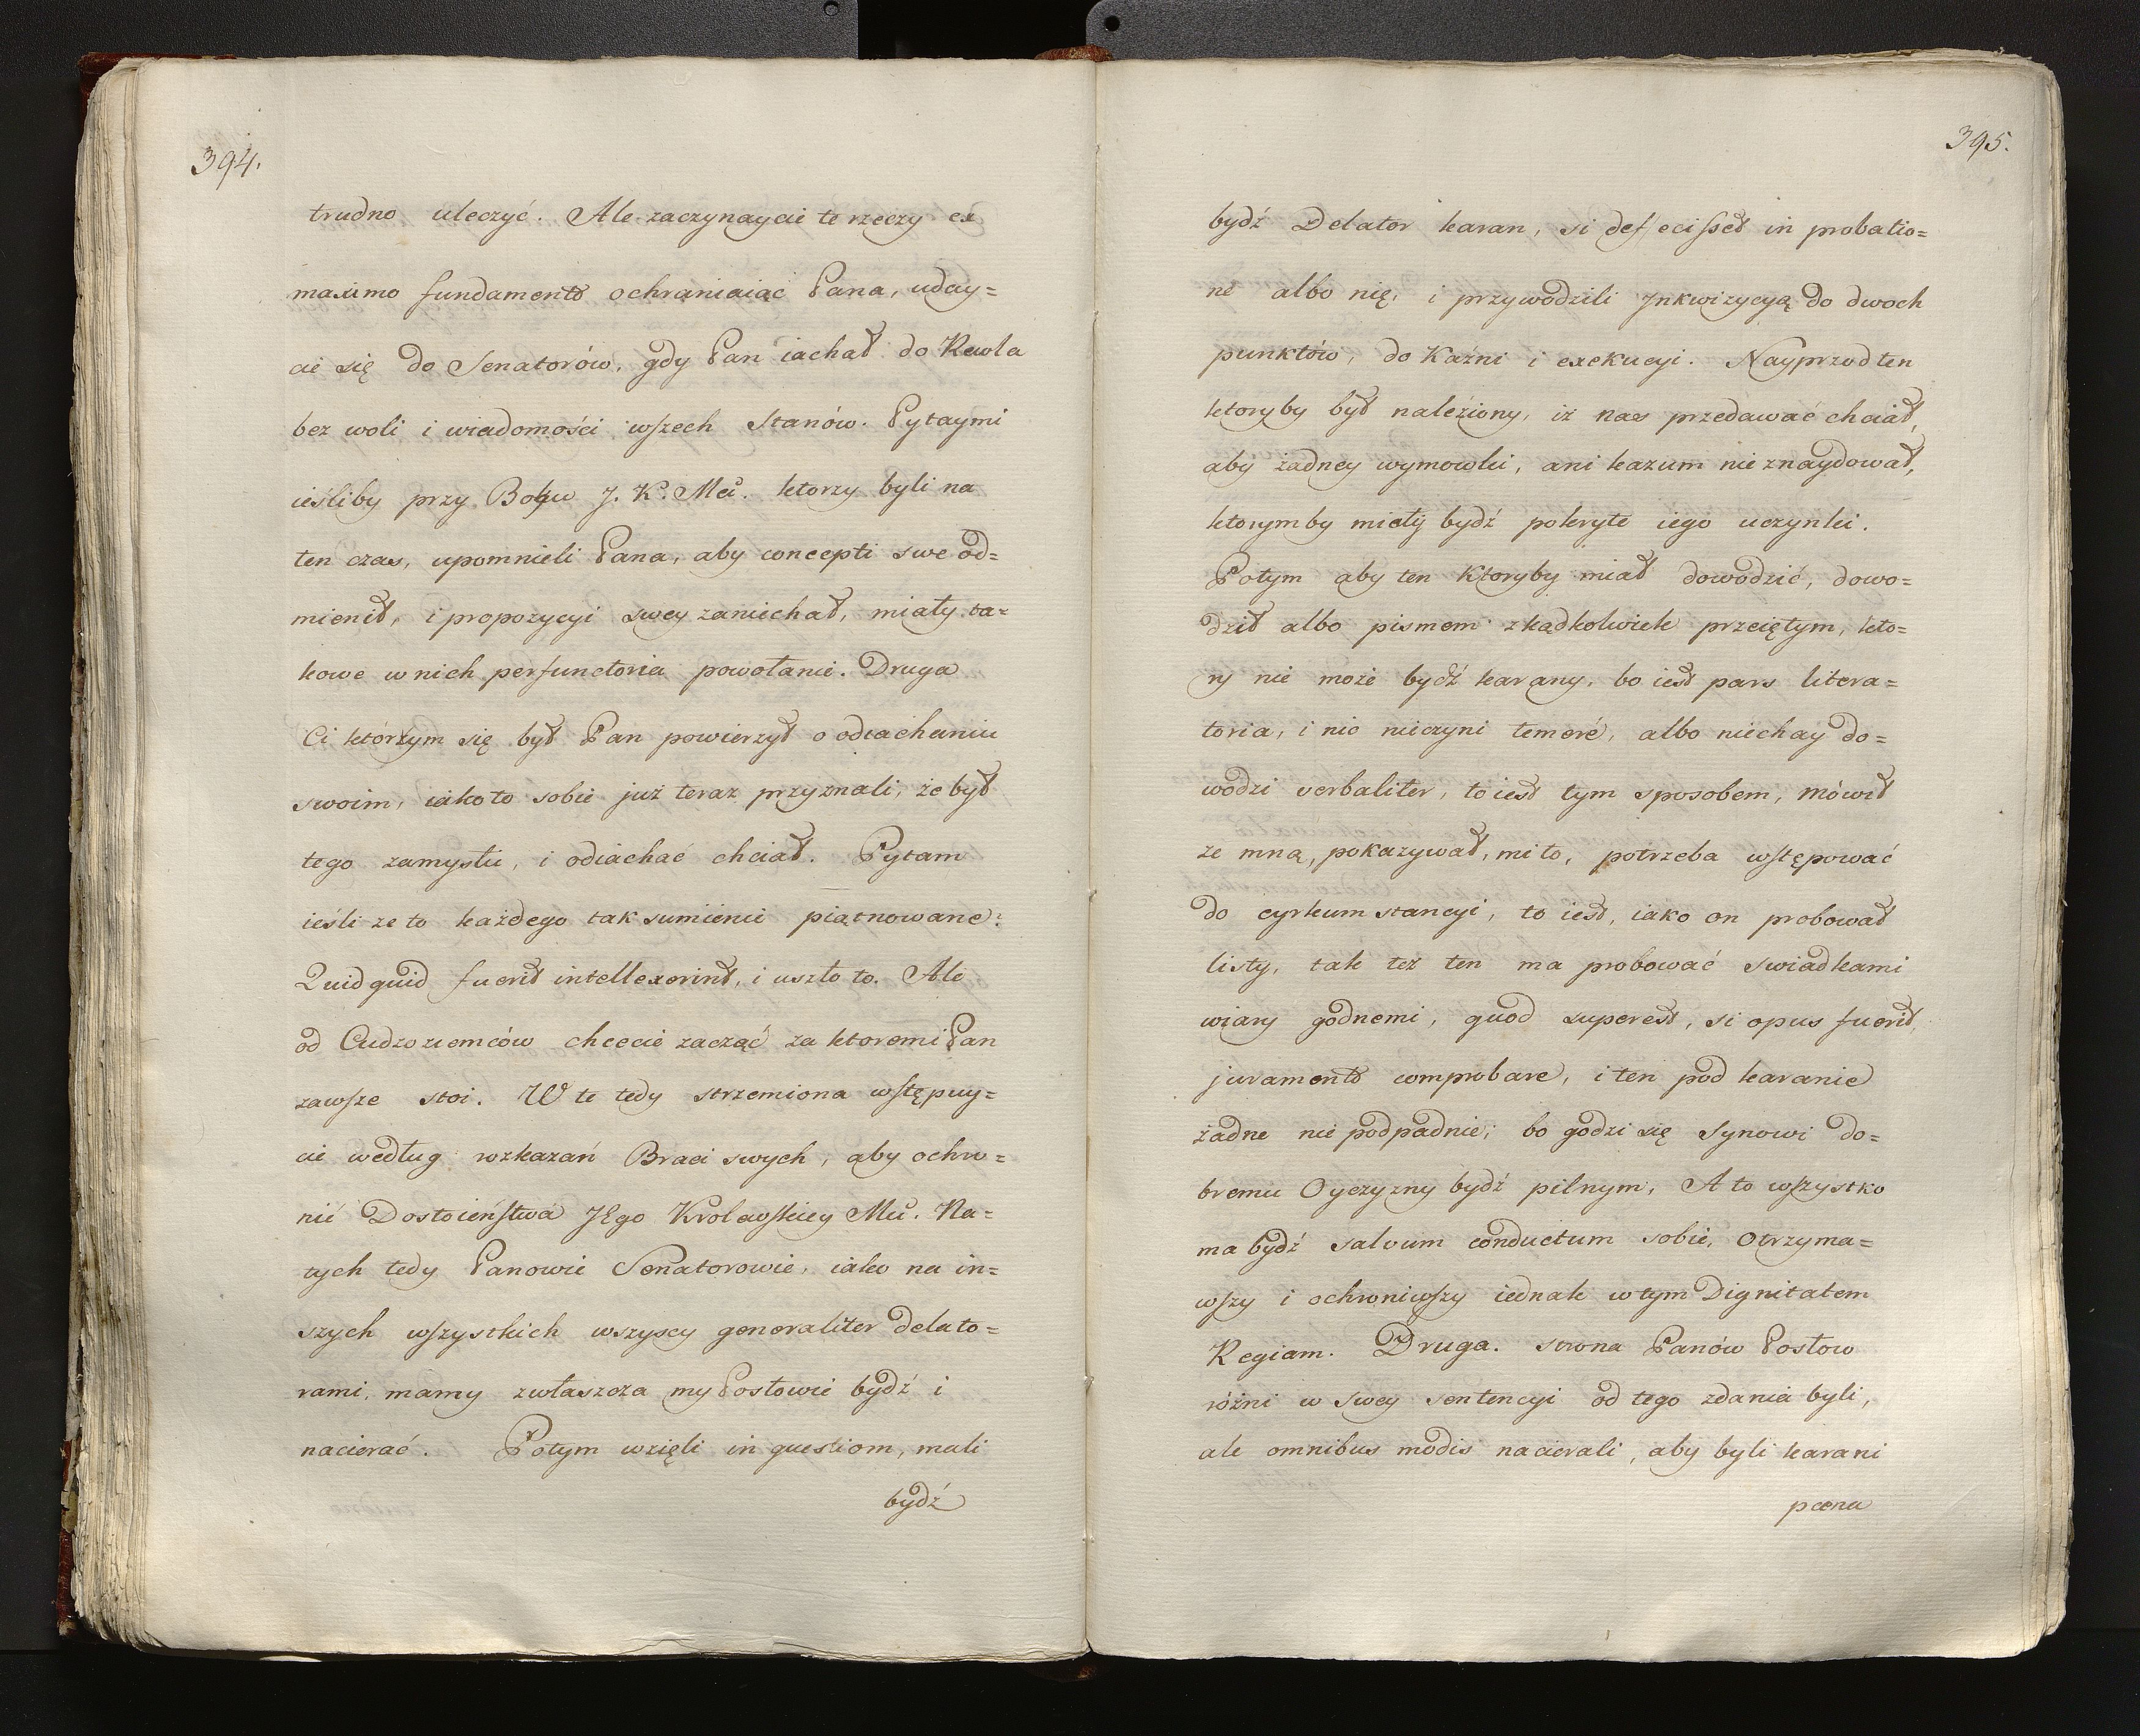 394.
trudno uleczyć. Ale zaczynaycie te rzeczy ex
maximo fundamento ochraniaiąc Pana, uday=
cie się do Senatorów, gdy Pan iachał do Rewla
bez woli i wiadomości wszech Stanów. Pytaymi
ieśliby przy Boku J. K. Mci. ktorzy byli na
ten czas, upomnieli Pana, aby concepti swe od=
mienił, i propozycyi swey zaniechał, miały ta=
kowe w nich perfunctoria powołanie. Druga
Ci którzym się był Pan powierzył o odiachaniu
swoim, iako to sobie już teraz przyznali, że był
tego zamysłu, i odiachać chciał. Pytam
ieśli ze to każdego tak sumienie piątnowane:
Quid quid fuerit intellexerint, i uszło to. Ale
od Cudzoziemców chcecie zacząć za ktoremi Pan
zawsze stoi. W te tedy strzemiona wstępuy=
cie według rozkazań Braci swych, aby ochro=
nić Dostoieństwa JEgo Krolewskiey Mci. Na=
tych tedy Panowie Senatorowie, iako na in=
szych wszystkich wszyscy generaliter delato=
rami, mamy zwłaszcza my Posłowie bydź i
nacierać. Potym wzięli in questiom, mali
bydź
395.
bydź Delator karan, si defecisset in probatio=
ne albo nie, i przywodzili Jnkwizycyą do dwoch
punktów, do Kaźni i exekucyi. Nayprzod ten
ktoryby był naleziony, iż nas przedawać chciał,
aby żadney wymowki, ani kazum nie znaydował,
ktorymby miały bydź pokryte iego uczynki.
Potym aby ten Ktoryby miał dowodzić, dowo=
dził albo pismem zkądkolwiek przeiętym, kto=
ry nie może bydź karany, bo iest pars litera=
toria, i nic nieczyni temerè, albo niechay do=
wodzi verbaliter, to iest tym sposobem, mówił
ze mną, pokazywał, mi to, potrzeba wstępować
do cyrkumstancyi, to iest, iako on probował
listy, tak też ten ma probować swiadkami
wiary godnemi, quod superest, si opus fuerit,
juramento comprobare, i ten pod karanie
żadne nie podpadnie; bo godzi się Synowi do=
bremu Oyczyzny bydź pilnym, A to wszystko
ma bydź salvum conductum sobie, otrzyma=
wszy i ochroniwszy iednak w tym Dignitatem
Regiam. Druga. strona Panów Posłow
różni w swey sentencyi od tego zdania byli,
ale omnibus modis nacierali, aby byli karani
pœna